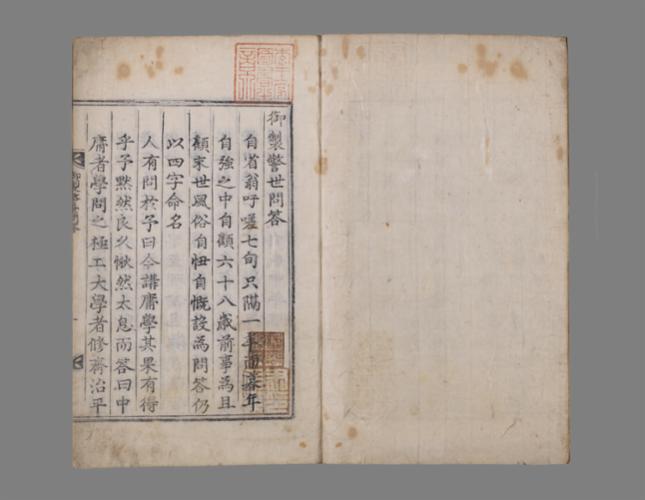 御製警世問答
自省翁吁嗟七旬只隔一年而暮年
自強之中自顧六十八歲前事為且
顧末世風俗自忸自慨設為問答仍
以四字命名
人有問於予曰今講庸學其果有得
乎予默然良久愀然太息而答曰中
庸者學問之極工大學者修齊治平